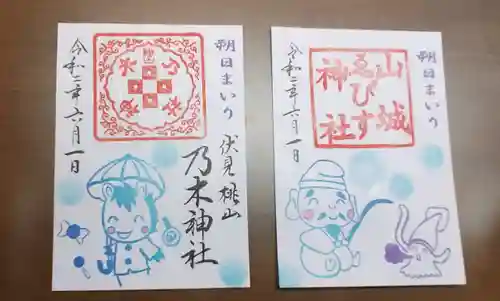 朔日まいり
伏見桃山
乃木神社
令和二年六月一日
朔日まいり
山城
ゑびす
神社
令和二年六月一日